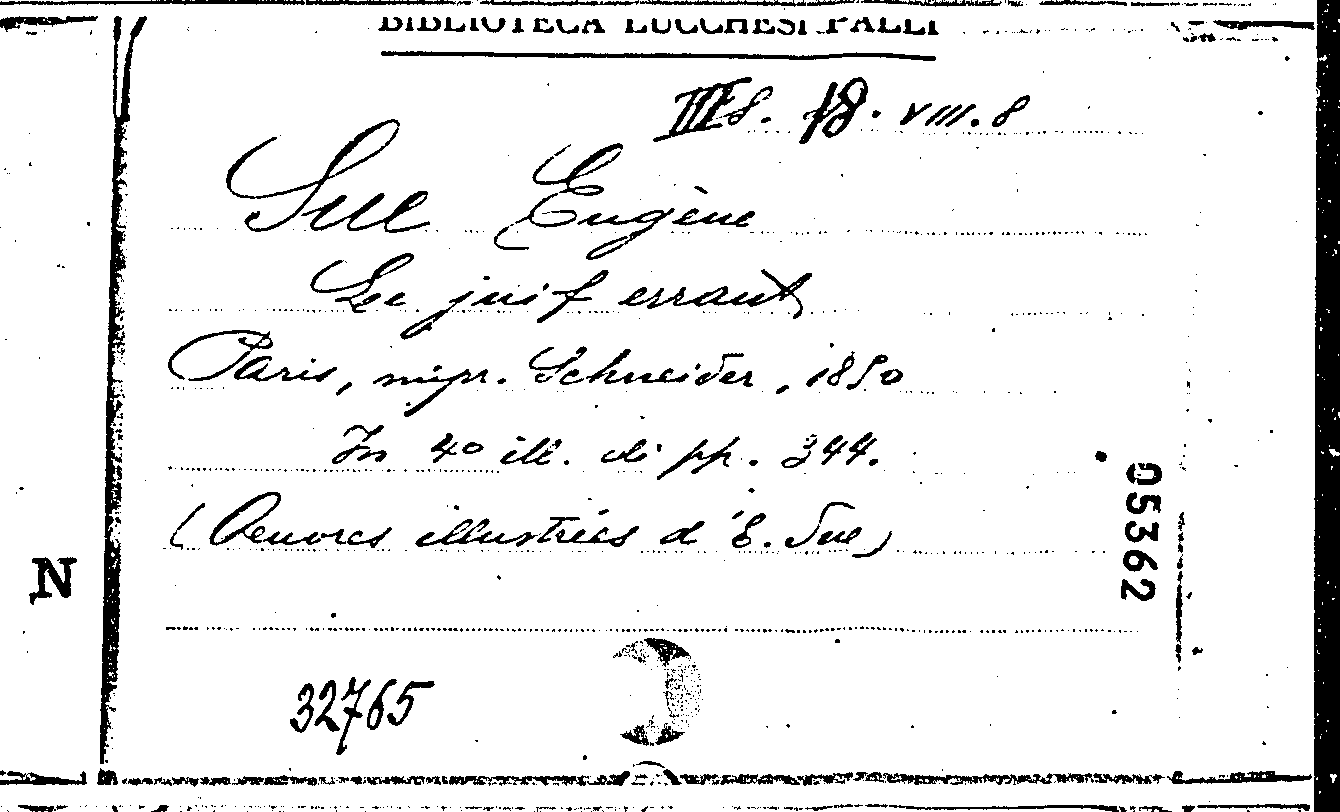 BIBLIOTECA LUCCHESI PALLI
VIII. 8
Sue Eugène
Le juif errant
Paris, impr. Schneider, 1850
In 4º ill. di pp. 344.
(Oeuvres illustrées d'E. Sue)
05362
N
32765